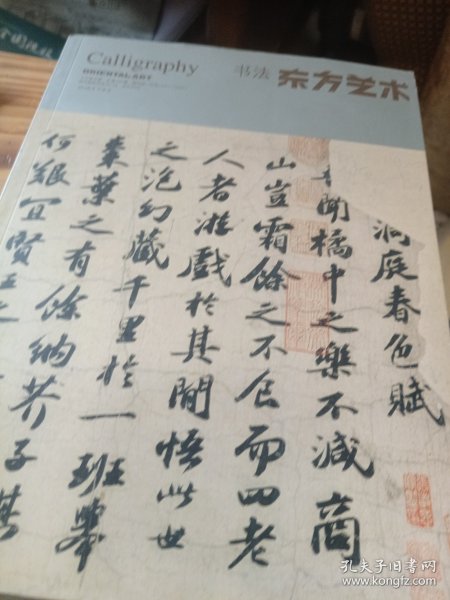 Calligraphy
ORIENTAL ART
书法 东方艺术
洞庭春色賦
聞橘中之樂不減商
山豈霜餘之不食而四老
人者遊戲於其間悟此世
之泡幻藏千里於一班舉
棗葉之有餘納芥子其
何艱宜賢王之
孔夫子旧书网
www.kongfz.com